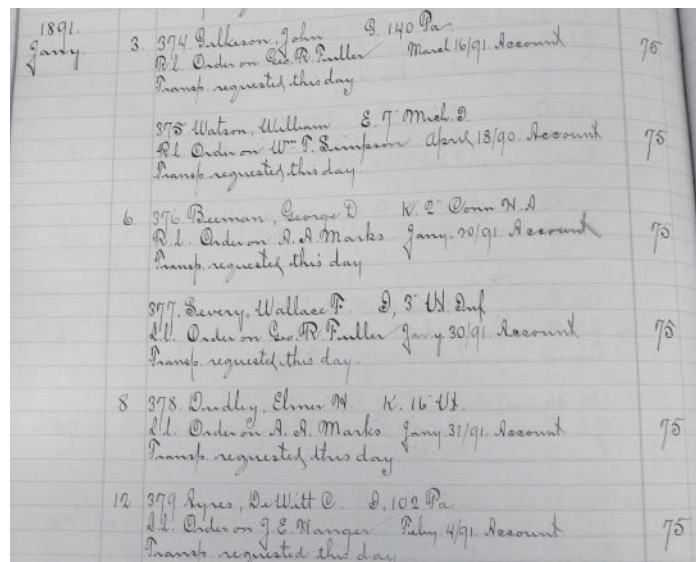 1891.
Jany. 3. 374. Gilkeson, John G. 140 Pa.
R.l. Order on Geo. R. Fuller March 16/91. Account 75
Transp. requested this day
375. Watson, William E. 7" Mich. 
R.l. Order on Wm. T. Simpson April 18/90. Account 75
Transp. requested this day
6 376. Beeman, George D. K. 2" Conn H.A
R.l. Order on A.A. Marks Jany. 20/91. Account 75
Transp. requested this day
377. Severy, Wallace F. D, 3" Vt. Inf
L.l. Order on Geo. R. Fuller Jany 30/91. Account 75
Transp. requested this day.
8 378. Dudley, Elmer W. K. 16 Vt.
L.l. Order on A. A. Marks Jany. 31/91. Account 75
Transp. requested this day
12 379 Ayres, DeWitt C. D, 102 Pa
L.l. Order on J. E. Hanger Feby 4/91. Account 75
Transp. requested this day